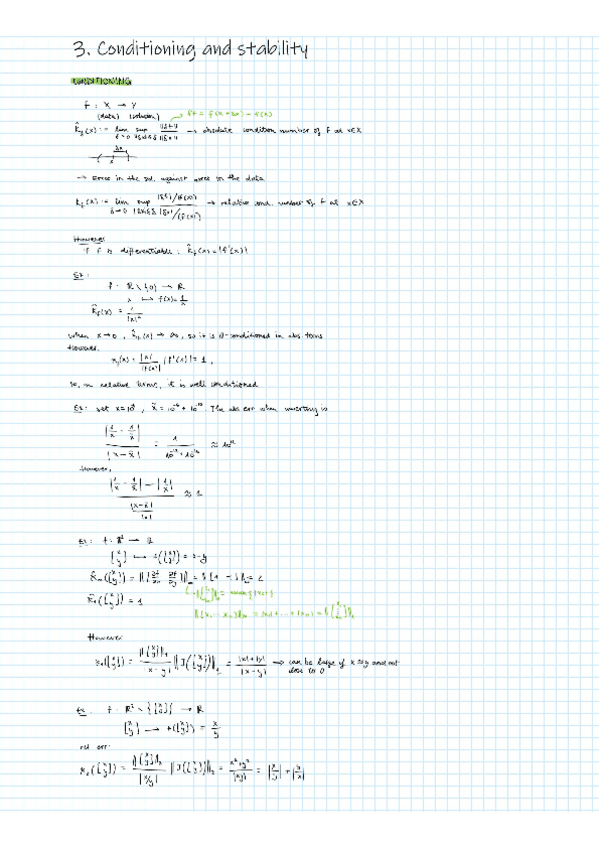 3. Conditioning and stability
CONDITIONING
f : X → Y
(data) (solution) δf = f(x + δx) - f(x)
K̂_f(x) := lim_{δ→0} sup_{‖δx‖≤δ} ‖δf‖/‖δx‖ → absolute condition number of f at x∈X
δx
x
→ Error in the sol. against error in the data
K_f(x) := lim_{δ→0} sup_{|δx|≤δ} |δf|/|f(x)| / |δx|/|x| → relative cond. number of f at x∈X
However
if f is differentiable: K̂_f(x) = |f'(x)|
Ex:
f: ℝ \ {0} → ℝ
x ↦ f(x) = 1/x
K̂_f(x) = 1/|x|²
when x→0, K̂_f(x) → ∞, so it is ill-conditioned in abs terms
However,
K_f(x) = |x|/|f(x)| |f'(x)| = 1,
so, in relative terms, it is well conditioned
Ex: set x = 10⁻⁶, x̃ = 10⁻⁶ + 10⁻¹⁰. The abs err when inverting is
|1/x - 1/x̃| / |x - x̃| = ≈ 10¹²
However,
≈ 1
Ex: f: ℝ² → ℝ
[x y] ↦ f([x y]) = x - y
K̂_∞([x y]) = ‖[∂f/∂x ∂f/∂y]‖_∞ = ‖[1 -1]‖_∞ = 2
K̂_1([x y]) = 1
‖[x₁ ... x_n]‖_∞ = |x₁| + ... + |x_n| =
However
K_1([x y]) = ‖[x y]‖_1 / |x - y| ‖J([x y])‖_1 = (|x| + |y|) / |x - y| → can be large if x ≈ y and not
close to 0
Ex: f: ℝ² \ → ℝ
[x y] ↦ f([x y]) = x/y
rel. err:
K_2([x y]) = ‖[x y]‖_2 / |x/y| ‖J([x y])‖_2 = (x² + y²) / |xy| = |x/y| + |y/x|